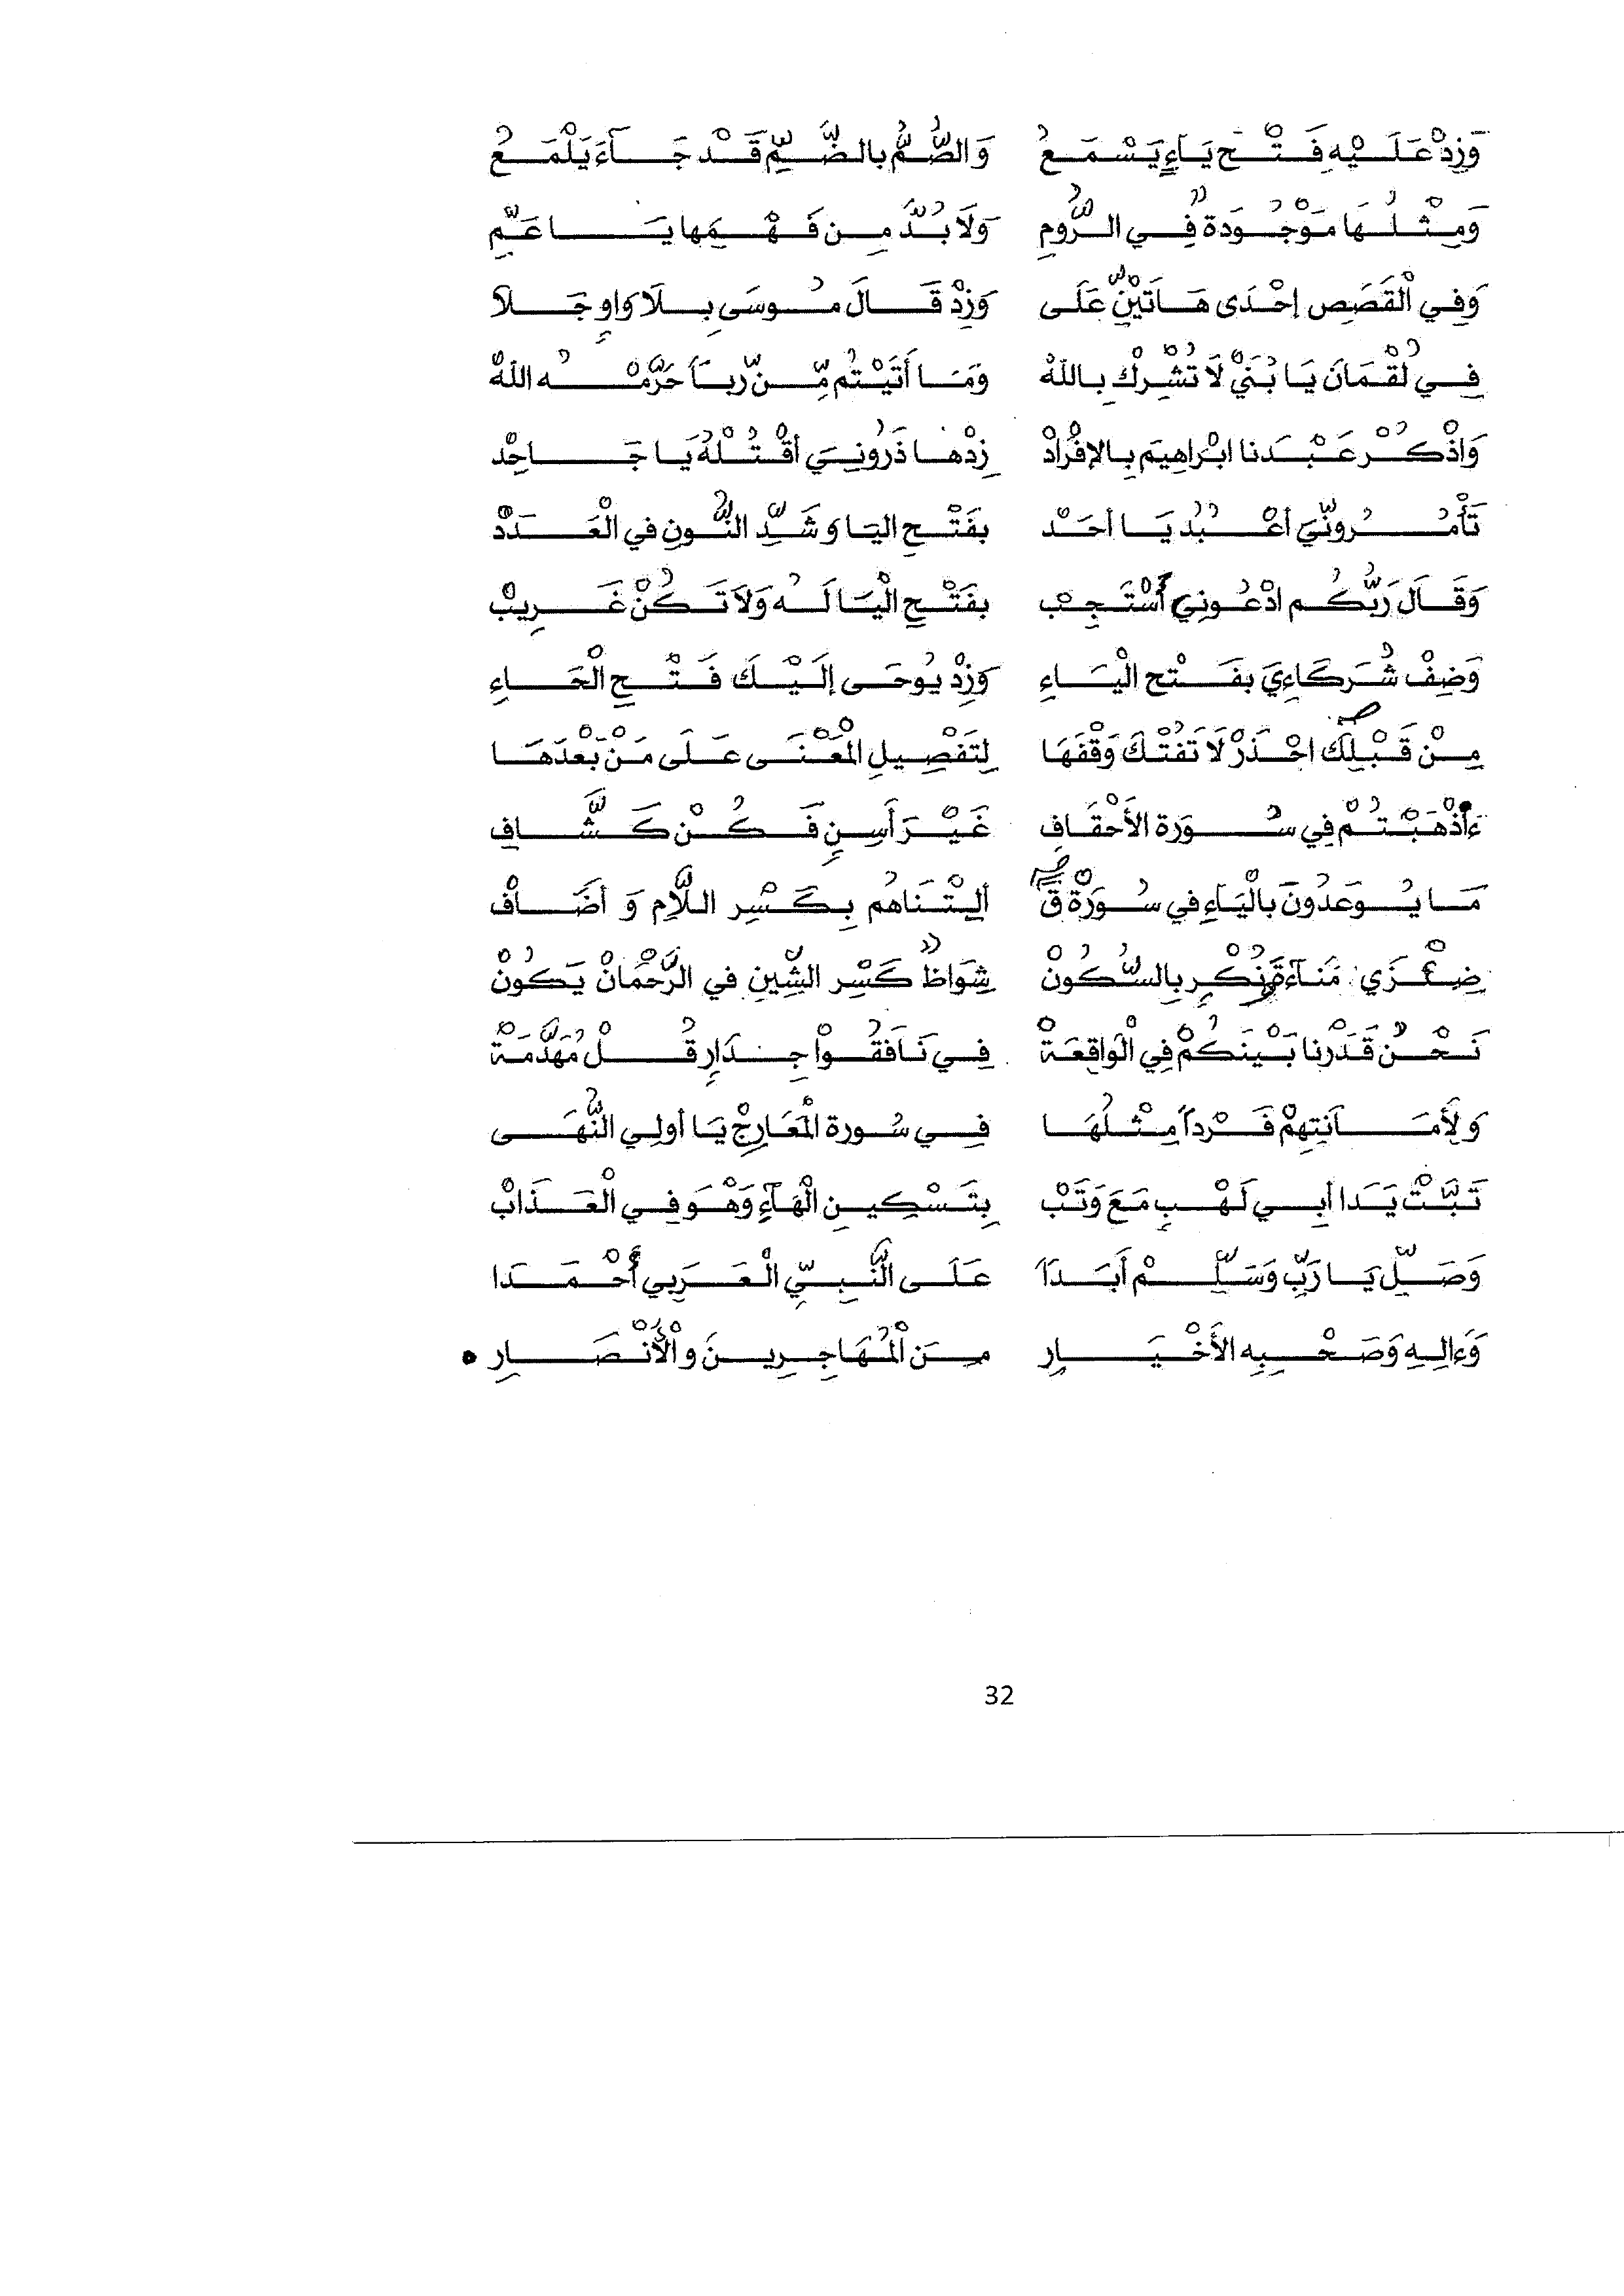 وَزِدْ عَلَيْهِ فَتْحَ يَاءِ يَسْمَعُ وَالصُّمُّ بِالضَّمِّ قَدْ جَاءَ يَلْمَعُ
وَمِثْلُهَا مَوْجُودَةٌ فِي الرُّومِ وَلَا بُدَّ مِن فَهْمِهَا يَا عَمِّ
وَفِي الْقَصَصِ إِحْدَى هَاتَيْنِّ عَلَى وَزِدْ قَالَ مُوسَى بِلَا وَاوٍ جَلَا
فِي لُقْمَانَ يَا بُنَيْ لَا تُشْرِكْ بِاللهْ وَمَا أَتَيْتُم مِّن رِّباً حَرَّمْهُ اللهْ
وَاذْكُرْ عَبْدَنا ابْراهِيمَ بِالإفْرَادْ زِدْها ذَرُونِيَ أَقْتُلْهُ يَا جَاحِدْ
تَأْمُرُونِّيَ أَعْبُدُ يَا أَحَدْ بِفَتْحِ اليَا وَشَدِّ النُّونِ فِي الْعَدَدْ
وَقَالَ رَبُّكُم ادْعُونِيَ أَسْتَجِبْ بِفَتْحِ الْيَا لَهُ وَلَا تَكُنْ غَرِيبْ
وَضِفْ شُرَكَاءِيَ بِفَتْحِ الْيَاءِ وَزِدْ يُوحَى إِلَيْكَ فَتْحِ الْحَاءِ
مِنْ قَبْلِكَ احْذَرْ لَا تَفُتْكَ وَقْفَهَا لِتَفْصِيلِ الْمَعْنَى عَلَى مَنْ بَعْدَهَا
ءَأَذْهَبْتُمْ فِي سُورَةِ الأَحْقَافِ غَيْرَ أَسِنٍ فَكُنْ كَشَّافِ
مَا يُوعَدُونَ بِالْيَاءِ فِي سُورَةْ قَ أَلِتْنَاهُم بِكَسْرِ اللَّامِ وَأَضَافْ
ضِئْزَى مَنَاءَةَ نُكْرٍ بِالسُّكُونْ شِوَاظٌ كَسْرِ الشِّينِ فِي الرَّحْمَانْ يَكُونْ
نَحْنُ قَدَرْنا بَيْنَكُمْ فِي الْوَاقِعَةْ فِي نَافَقُوا جِدَارٍ قُلْ مُهَدَّمَةْ
وَلِأَمَانَتِهِمْ فَرْداً مِثْلُهَا فِي سُورَةِ الْمَعَارِجْ يَا أُولِي النُّهَى
تَبَّتْ يَدَا أَبِي لَهْبٍ مَعَ وَتَبْ بِتَسْكِينِ الْهَاءِ وَهْوَ فِي الْعَذَابْ
وَصَلِّ يَا رَبِّ وَسَلِّمْ أَبَدَا عَلَى النَّبِيِّ الْعَرَبِي أَحْمَدَا
وَءَالِهِ وَصَحْبِهِ الأَخْيَارِ مِنَ الْمُهَاجِرِينَ وَالْأَنْصَارِ •
32